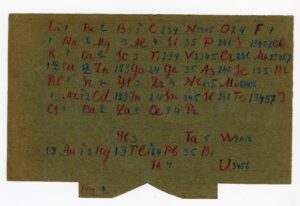 Li 1 Be 2 B 3 C 2 3 4 N 2 3 4 5 O 2 4 F 1
1 Na 2 Mg 3 Al 4 Si 3 5 P 2 4 6 S 1 3 4 5 7 Cl
K 1 Ca 2 Sc 3 Ti 3 4 V 2 3 4 5 Cr 2 3 6 Mn 2 3 4 6 7
1 2 Cu 2 Zn 1 2 3 Ga 2 4 Ge 3 5 As 2 4 6 Se 1 3 5 Br
Rb 1 Sr 2 Yt 3 Zr 4 Nb 3 5 Mo 2 3 4 6
1 Ag 1 2 Cd 1 2 3 In 2 4 Sn 3 4 5 Sb 2 4 6 Te 1 3 4 5 7 J
Cs 1 Ba 2 La 3 Ce 3 4 Pr
Yb 3 Ta 5 W
1 3 Au 1 2 Hg 1 3 Tl 2 4 Pb 3 5 Bi
Th 4 U